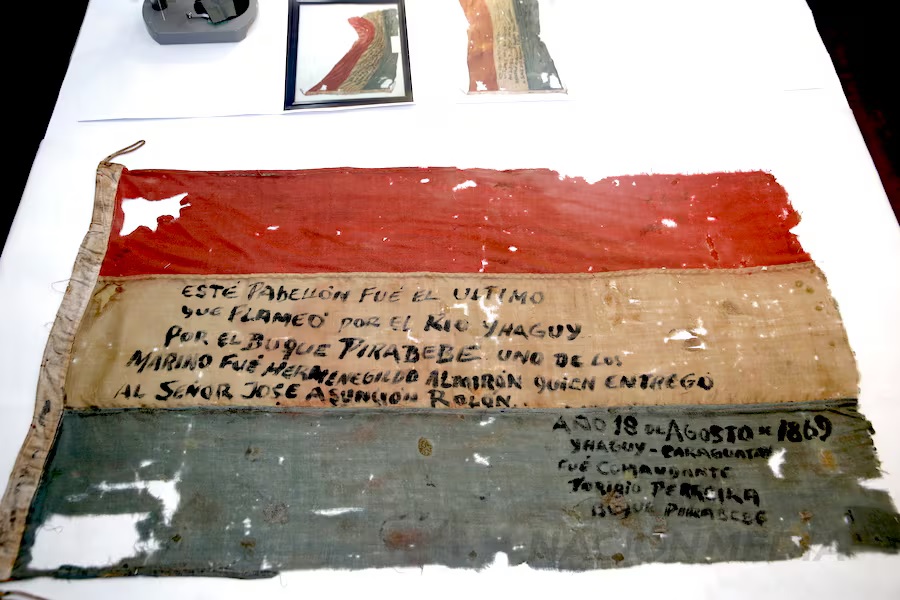 ESTÉ PABELLÓN FUÉ EL ULTIMO
QUE FLAMEÓ POR EL RIO YHAGUY
POR EL BUQUE PIRABEBE UNO DE LOS
MARINO FUÉ HERMENEGILDO ALMIRÓN QUIEN ENTREGÓ
AL SEÑOR JOSE ASUNCION ROLON.
AÑO 18 DE AGOSTO DE 1869
YHAGUY-CARAGUATAY
FUÉ COMANDANTE
TORIBIO PEREIRA
BUQUE PIRABEBE
NACIÓN MEDIA